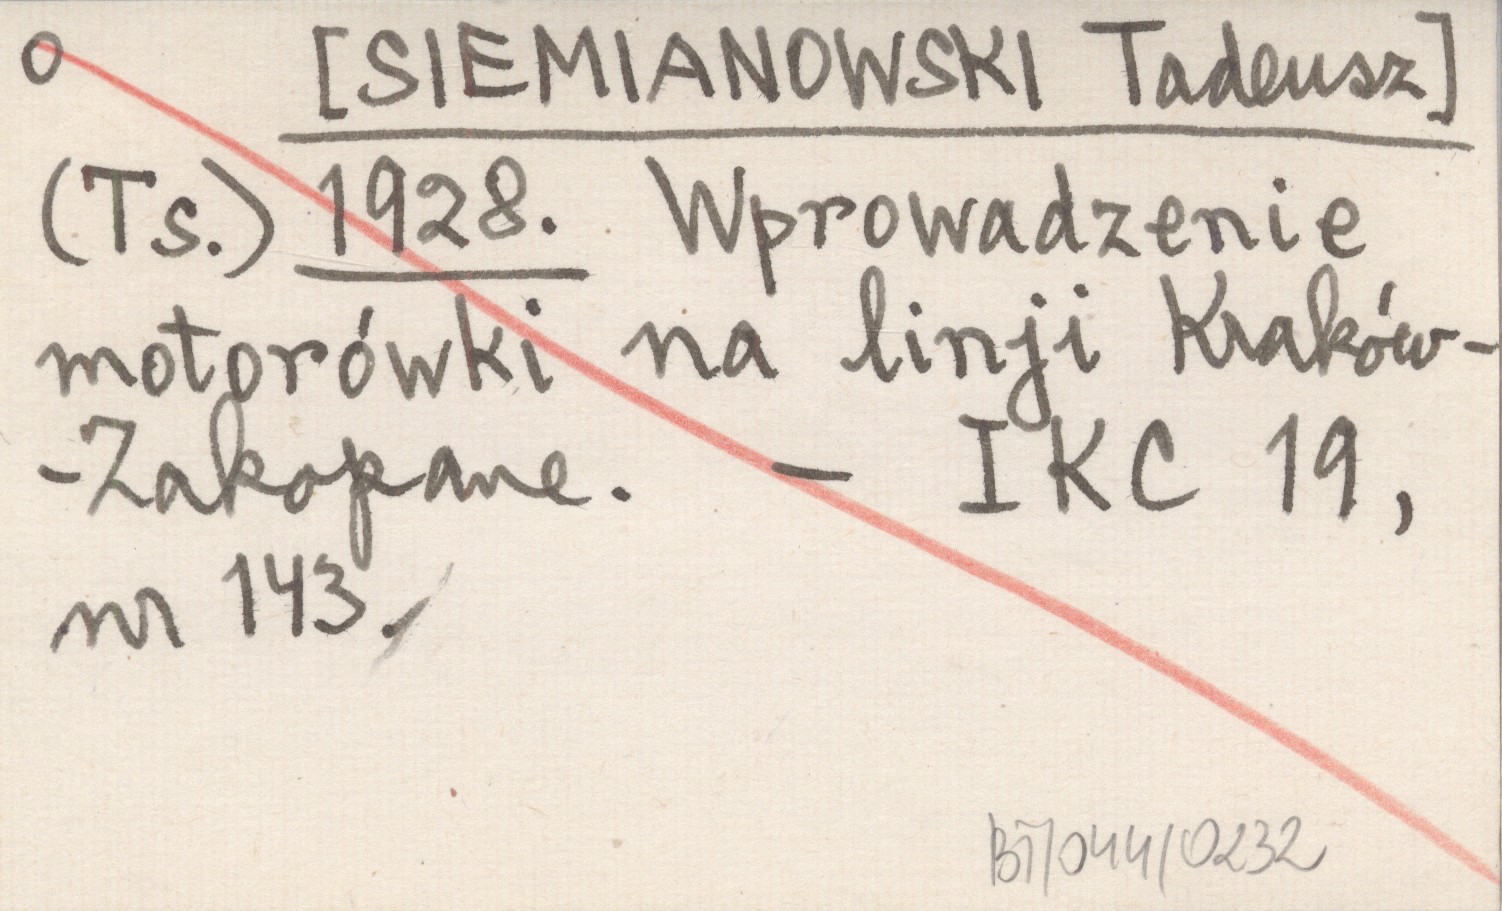 o [SIEMIANOWSKI Tadeusz]
(Ts.) 1928. Wprowadzenie
motorówki na linji Kraków-
-Zakopane. — IKC 19,
nr 143.
BT/044/0232